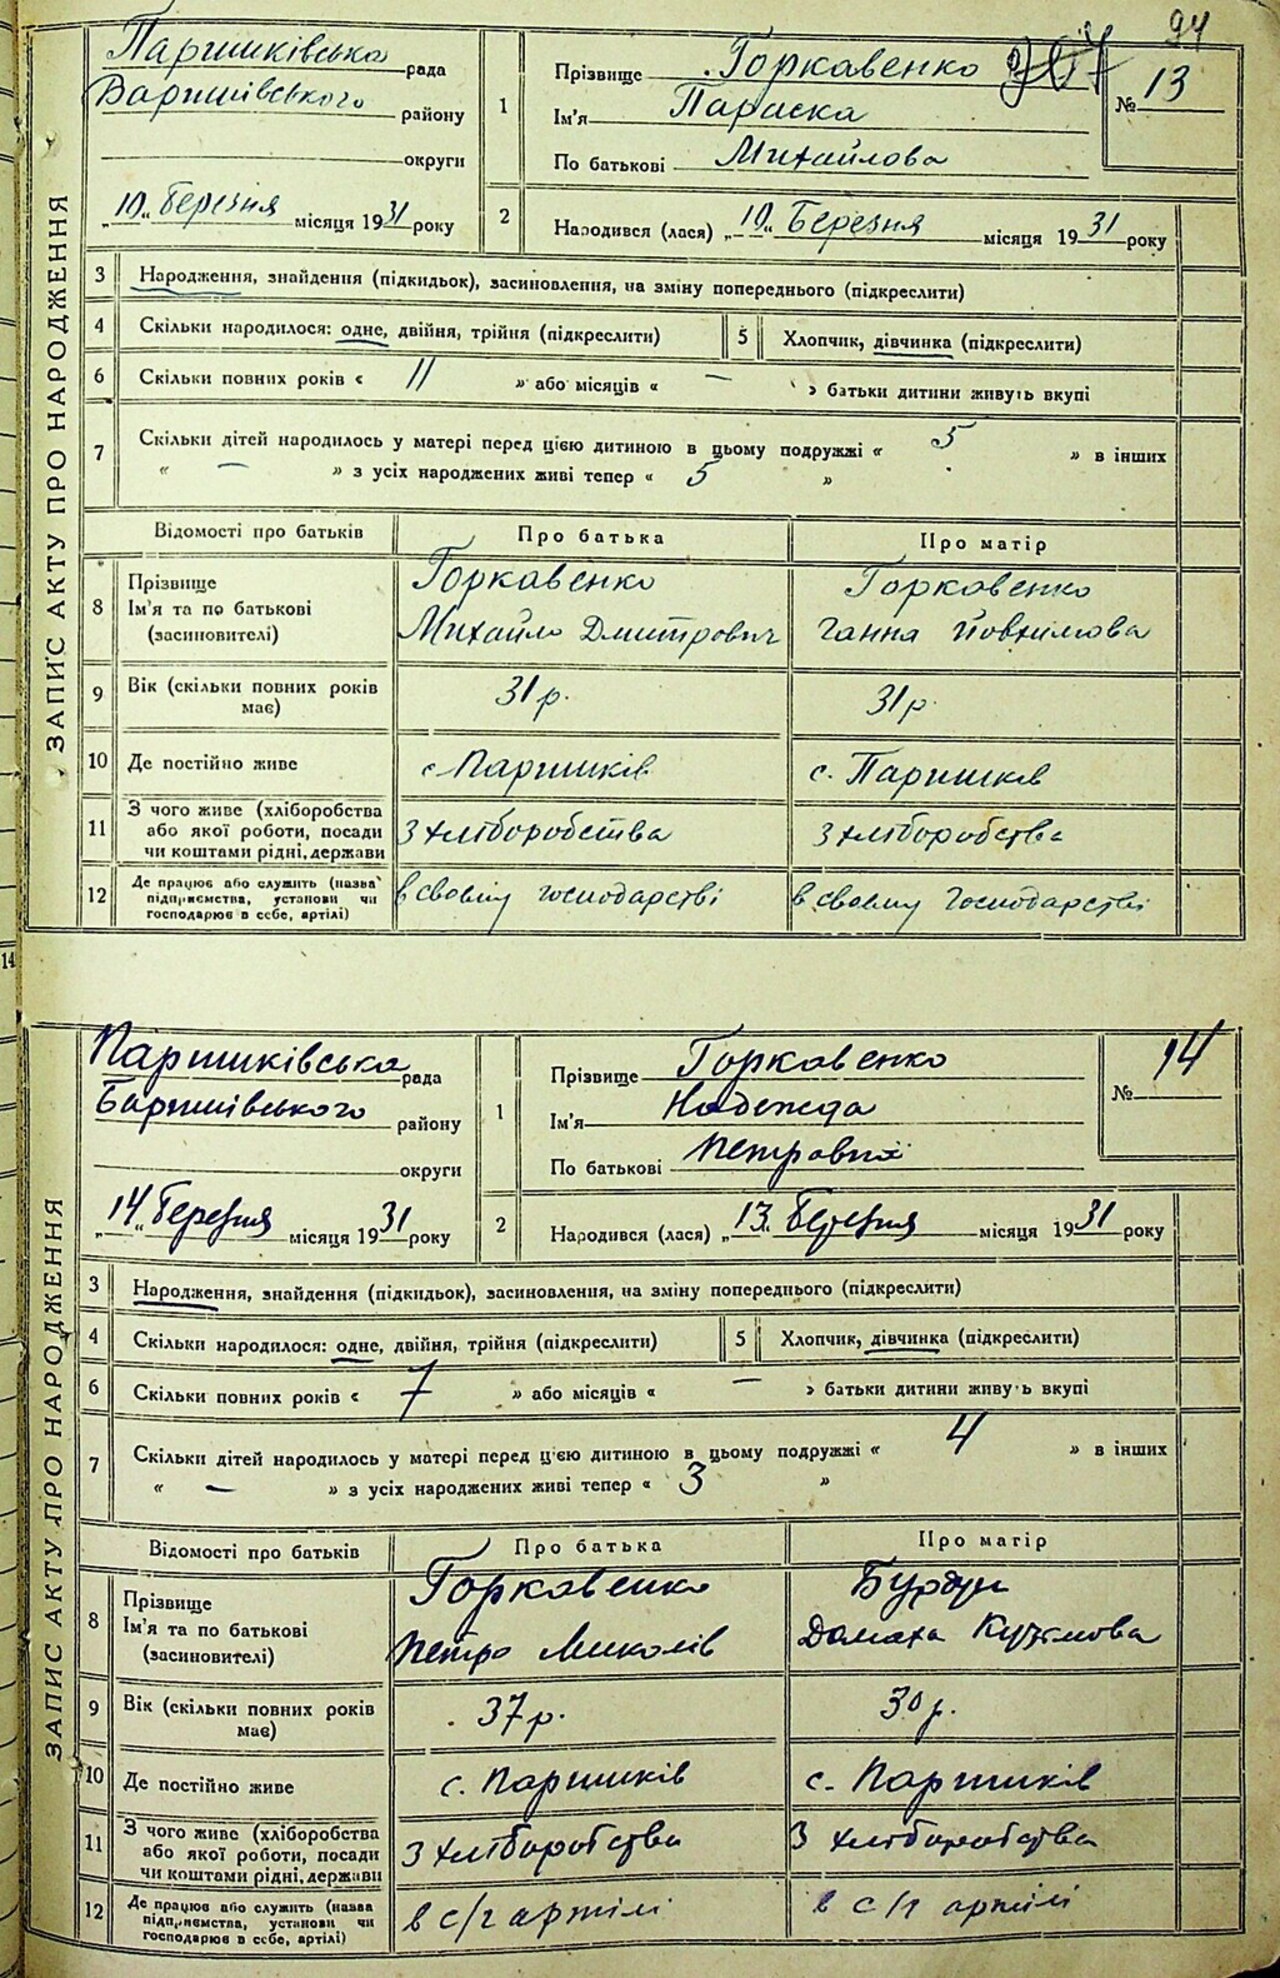 94
ЗАПИС АКТУ ПРО НАРОДЖЕННЯ
Паришківська рада
Баришівського району
округи
„10“ Березня місяця 1931 року
1
Прізвище Горкавенко
Ім'я Параска
По батькові Михайлова
№ 13
2
Народився (лася) „10“ Березня місяця 1931 року
3 Народження, знайдення (підкидьок), засиновлення, на зміну попереднього (підкреслити)
4 Скільки народилося: одне, двійня, трійня (підкреслити)
5 Хлопчик, дівчинка (підкреслити)
6 Скільки повних років « 11 » або місяців « — » батьки дитини живуть вкупі
7 Скільки дітей народилось у матері перед цією дитиною в цьому подружжі « 5 » в інших
« — » з усіх народжених живі тепер « 5 »
Відомості про батьків Про батька Про матір
8 Прізвище
Ім'я та по батькові
(засиновителі)
Горкавенко
Михайло Дмитрович
Горкавенко
Ганна Йовхимова
9 Вік (скільки повних років
має)
31 р. 31 р.
10 Де постійно живе с. Паришків с. Паришків
11 З чого живе (хліборобства
або якої роботи, посади
чи коштами рідні, держави
З хліборобства З хліборобства
12 Де працює або служить (назва
підприємства, установи чи
господарює в себе, артілі)
в своєму господарстві в своєму господарстві
14
ЗАПИС АКТУ ПРО НАРОДЖЕННЯ
Паришківська рада
Баришівського району
округи
„14“ Березня місяця 1931 року
1
Прізвище Горкавенко
Ім'я Надежда
По батькові
№ 14
2
Народився (лася) „13“ Березня місяця 1931 року
3 Народження, знайдення (підкидьок), засиновлення, на зміну попереднього (підкреслити)
4 Скільки народилося: одне, двійня, трійня (підкреслити)
5 Хлопчик, дівчинка (підкреслити)
6 Скільки повних років « 7 » або місяців « — » батьки дитини живуть вкупі
7 Скільки дітей народилось у матері перед цією дитиною в цьому подружжі « 4 » в інших
« — » з усіх народжених живі тепер « 3 »
Відомості про батьків Про батька Про матір
8 Прізвище
Ім'я та по батькові
(засиновителі)
Горкавенко
Петро Миколів
Бурдун
Домаха Кузьмова
9 Вік (скільки повних років
має)
37 р. 30 р.
10 Де постійно живе с. Паришків с. Паришків
11 З чого живе (хліборобства
або якої роботи, посади
чи коштами рідні, держави
З хліборобства З хліборобства
12 Де працює або служить (назва
підприємства, установи чи
господарює в себе, артілі)
в с/г артілі в с/г артілі